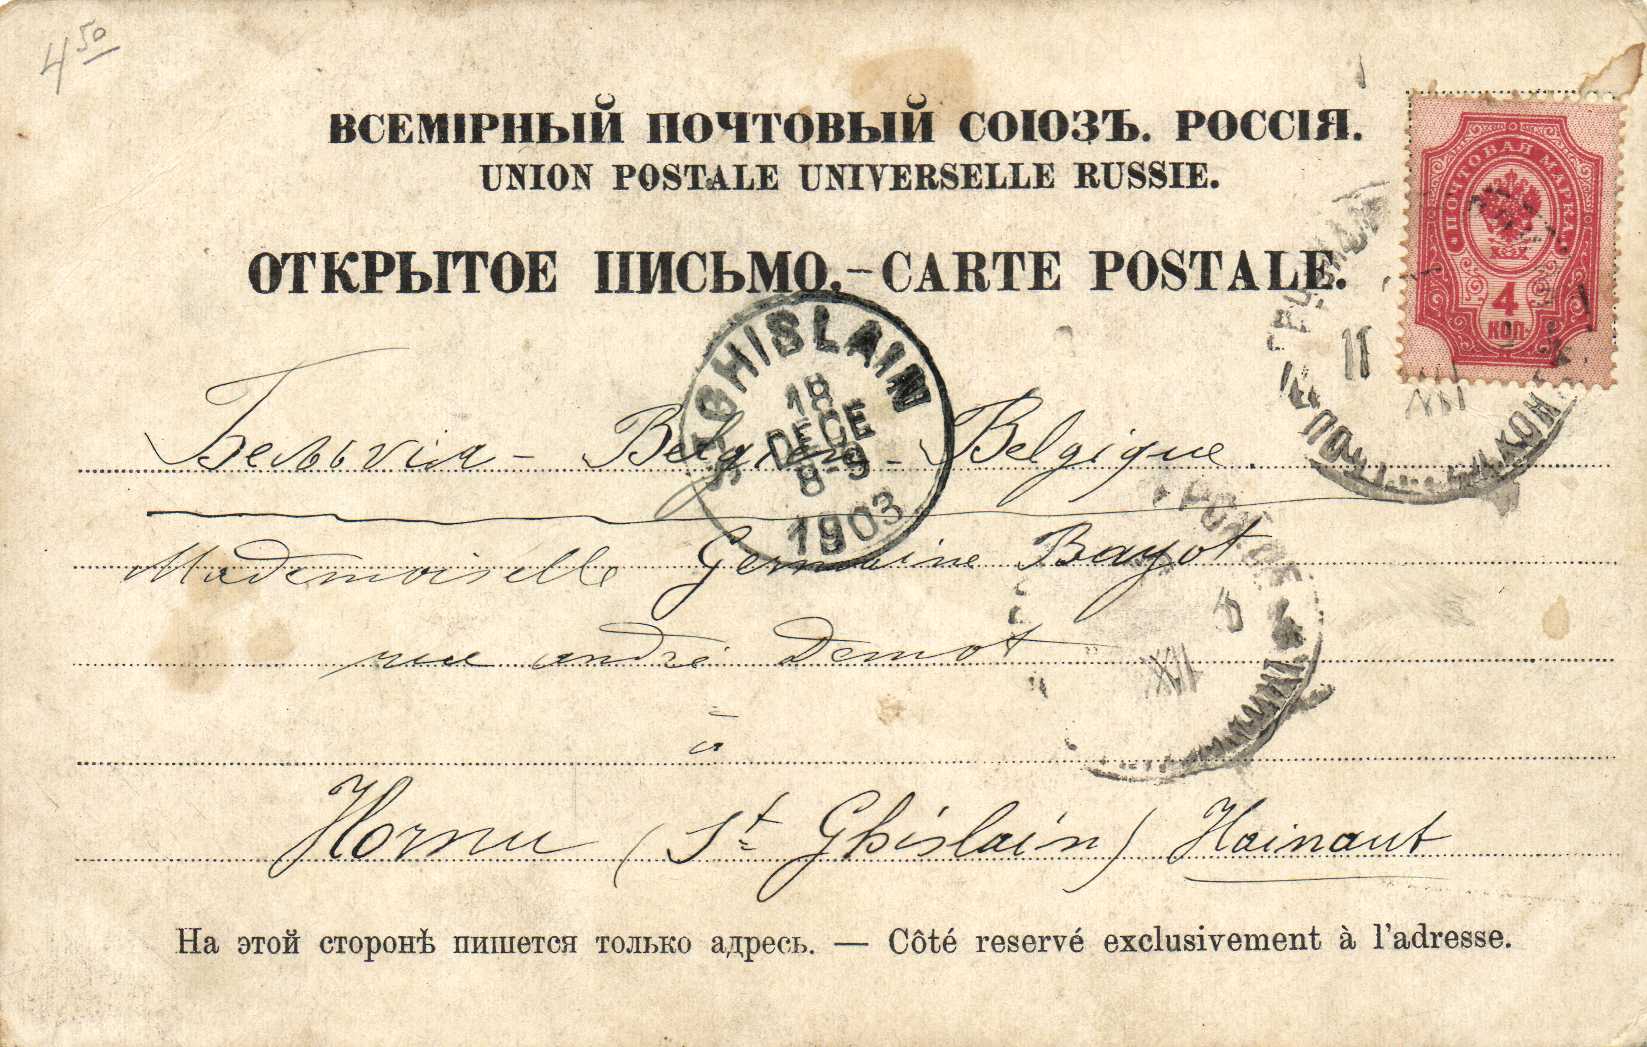 4 50
ВСЕМІРНЫЙ ПОЧТОВЫЙ СОЮЗЪ. РОССІЯ.
UNION POSTALE UNIVERSELLE RUSSIE.
ПОЧТОВАЯ МАРКА
4
КОП.
ОТКРЫТОЕ ПИСЬМО.–CARTE POSTALE.
ST GHISLAIN
18
DECE
8-9
1903
11
XII
Бельгія - Belgien - Belgique.
Mademoiselle Germaine Bayot
rue andré Demot
XII
à
Hornu (St Ghislain) Hainaut
На этой сторонѣ пишется только адресъ. — Côté reservé exclusivement à l'adresse.